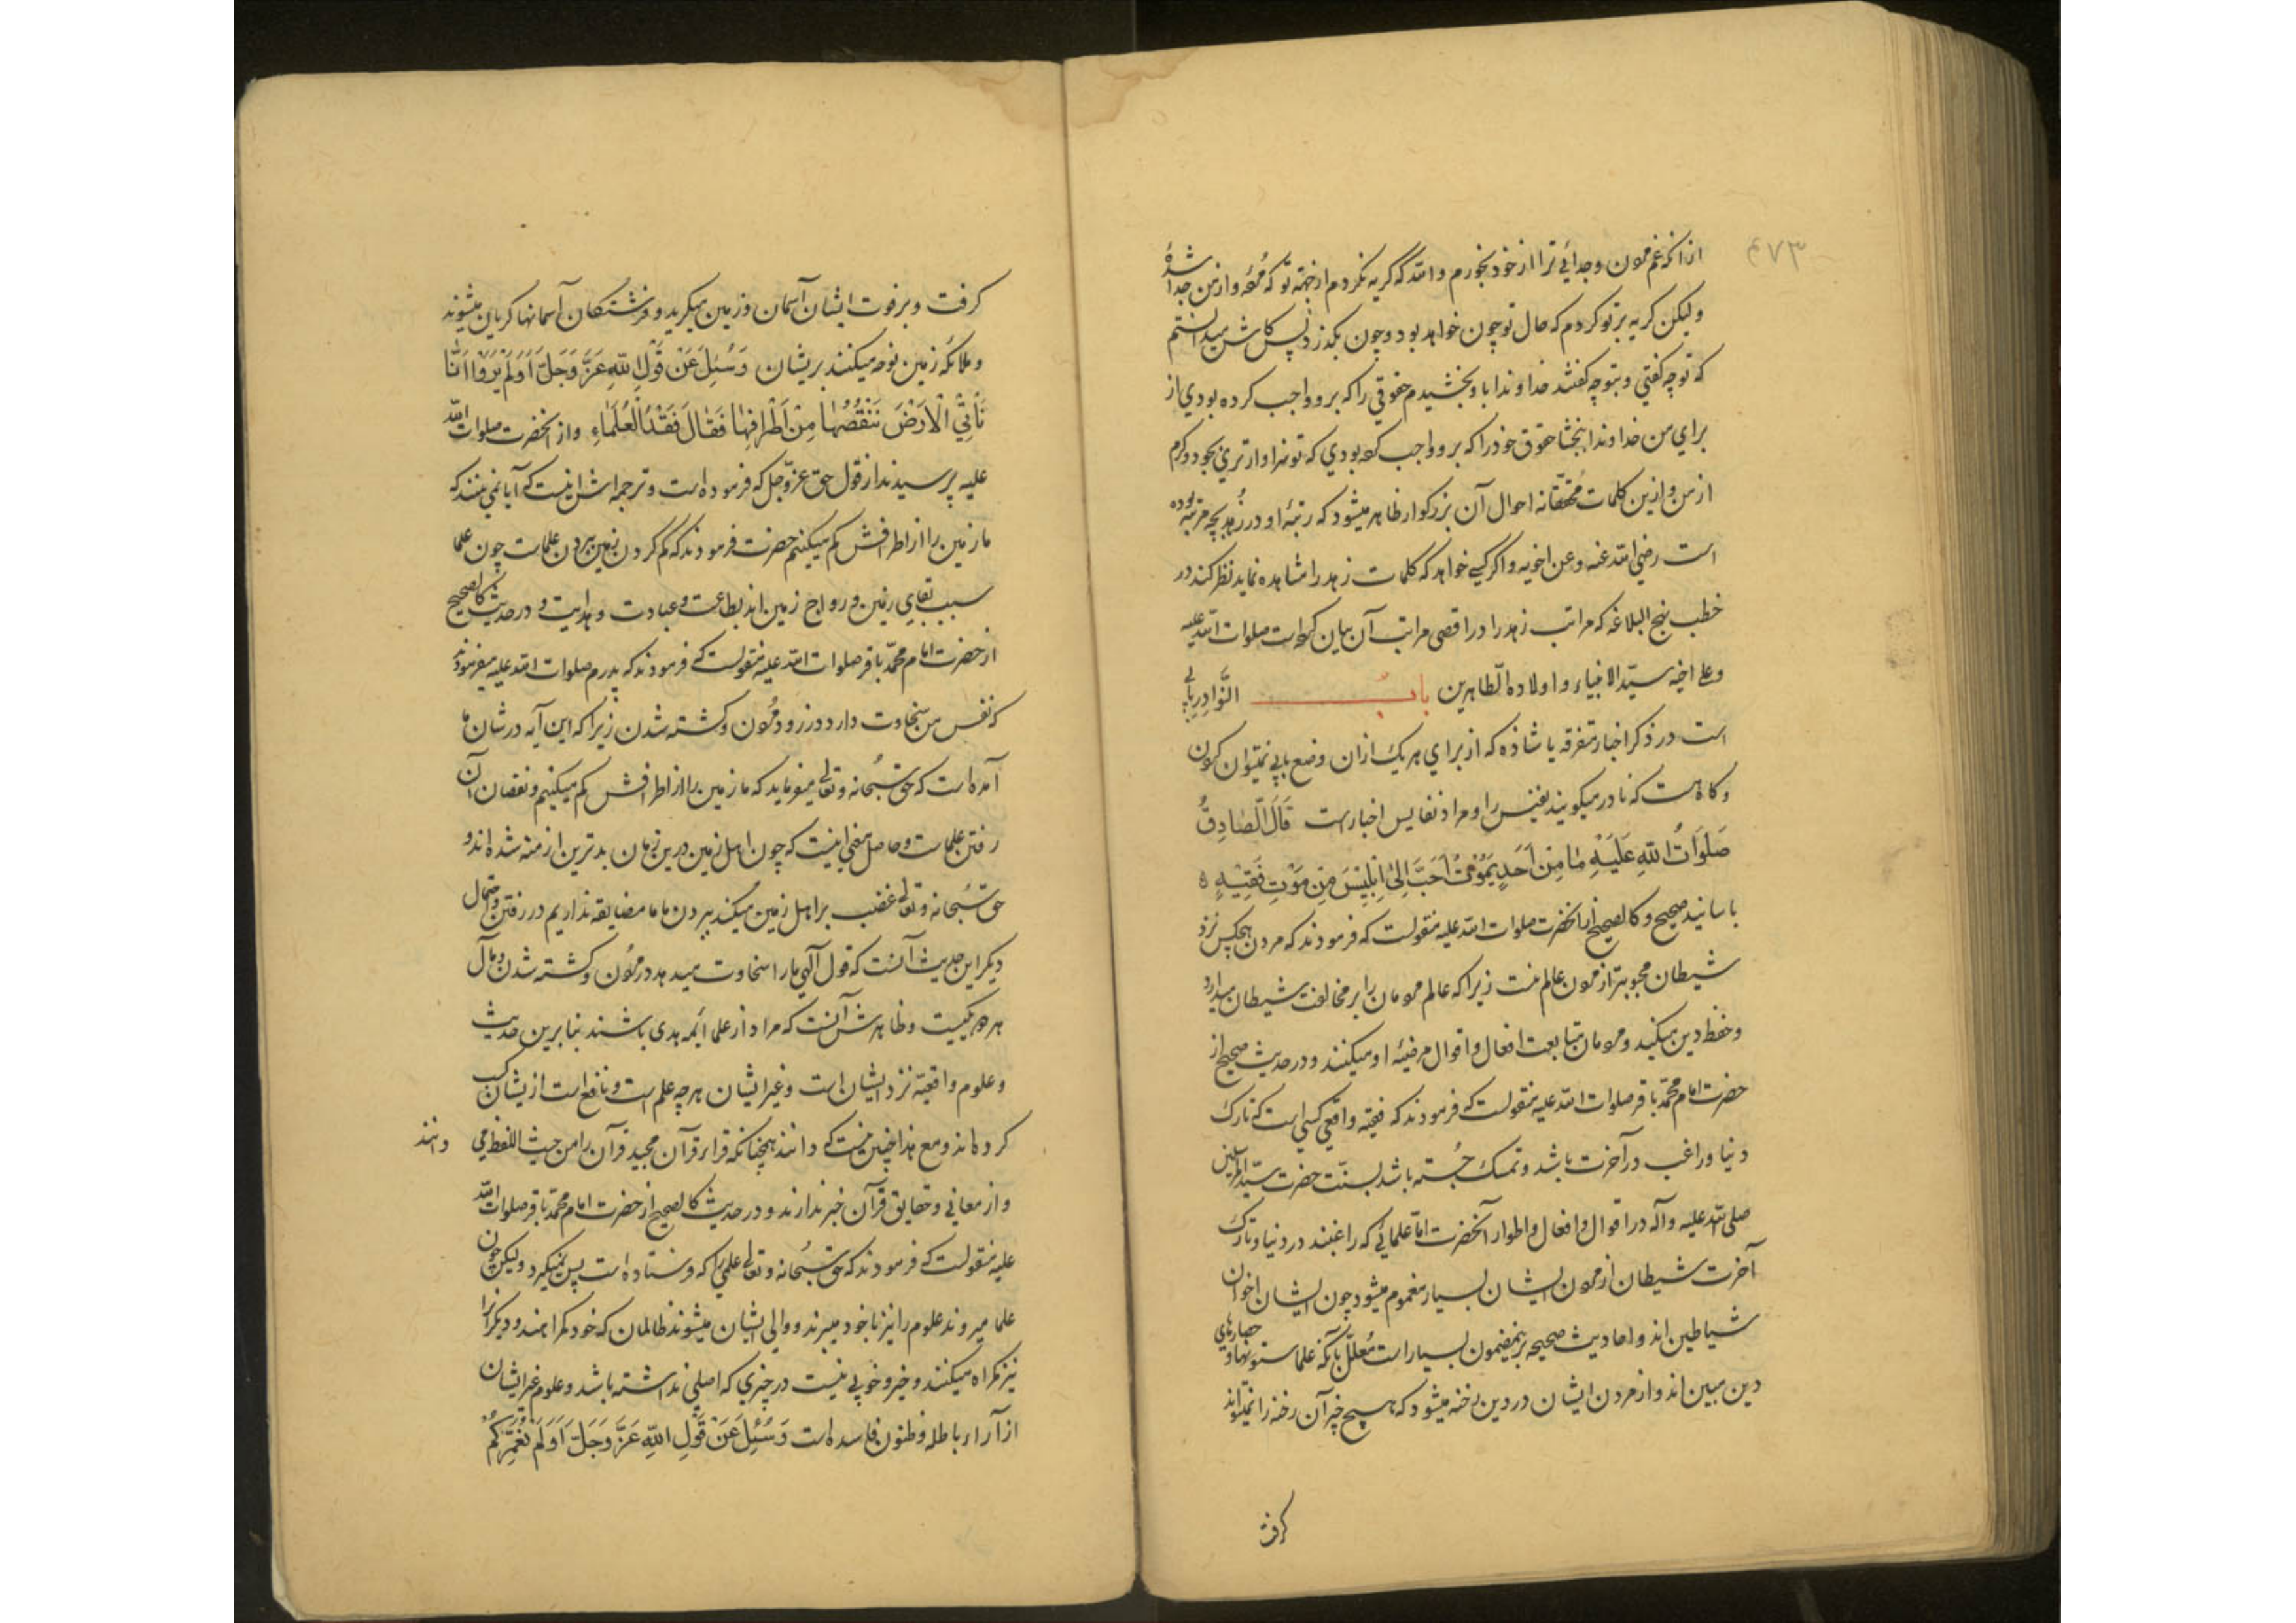 ۴۷۳
از آنکه غم مردن و جدائی ترا از خود بخورم والله که گریه نکردم از جهة تو که مرده و از من جدا شدهٔ
ولیکن گریه بر تو کردم که حال تو چون خواهد بود و چون بگذرد پس کاش میدانستم
که تو چه گفتی و بتو چه گفتند خداوندا باو بخشیدم حقوقی را که برو واجب کرده بودی از
برای من خداوندا ببخشا حقوق خود را که برو واجب کرده بودی که تو سزاوارتری بجود و کرم
از من و ازین کلمات محققانه احوال آن بزرکوار ظاهر میشود که رتبهٔ او در زهد بچه مرتبه بوده
است رضی الله عنه و عن اخویه و اگر کسی خواهد که کلمات زهد را مشاهده نماید نظر کند در
خطب نهج البلاغه که مراتب زهد را در اقصی مراتب آن بیان کرده است صلوات الله علیه
و علی اخیه سیّد الانبیاء و اولاده الطّاهرین بابُ النَّوادِرِ بابی
است در ذکر اخبار متفرقه یا شاذه که از برای هر یک ازان وضع بابی نمیتوان کردن
و گاه هست که نادر میکویند نفیس را و مراد نفایس اخبارست قَالَ الصّادِقُ
صَلَوَاتُ اللهِ عَلَیْهِ مٰا مِنْ اَحَدٍ یَمُوْتُ اَحَبَّ اِلیٰ اِبْلِیْسَ مِنْ مَوْتِ فَقِیْهٍ ه
باسانید صحیح و کالصحیح از آنحضرت صلوات الله علیه منقولست که فرمودند که مردن هیچکس نزد
شیطان محبوبتر از مردن عالم نیست زیرا که عالم مردمان را بر مخالفت شیطان میدارد
و حفظ دین میکند و مردمان متابعت افعال و اقوال مرضیّه او میکنند و در حدیث صحیح از
حضرت امام محمّد باقر صلوات الله علیه منقولست که فرمودند که فقیه واقعی کسی است که تارک
دنیا و راغب در آخرت باشد و تمسک جُسته باشد بسنّت حضرت سیّد المرسلین
صلی الله علیه و آله در اقوال و افعال و اطوار آنحضرت امّا علمائی که راغبند در دنیا و تارک
آخرت شیطان از مردن ایشان بسیار مغموم میشود چون ایشان اخوان
شیاطین اند و احادیث صحیحه برینمضمون بسیار است مُعلّل بآنکه علما ستونها و حصارهای
دین مبین اند و از مردن ایشان در دین رخنه میشود که هیچ چیز آن رخنه را نمیتواند
کرفت
کرفت و بر فوت ایشان آسمان و زمین میکرید و فرشتکان آسمانها کریان میشوند
و ملائکه زمین نوحه میکنند بریشان وَسُئِلَ عَنْ قَوْلِ اللهِ عَزَّ وَجَلَّ اَوَلَمْ یَرَوْا اَنّٰا
نَأْتِی الْاَرْضَ نَنْقُصُهٰا مِنْ اَطْرٰافِهٰا فَقٰالَ فَقْدُ الْعُلَمٰاءِ و از آنحضرت صلوات الله
علیه پرسیدند از قول حق عزّ و جل که فرموده است و ترجمه اش اینست که آیا نمی بینند که
ما زمین را از اطرافش کم میکنیم حضرت فرمودند که کم کردن زمین بردن علماست چون علما
سبب بقای زمین و رواج زمین اند بطاعت و عبادت و هدایت و در حدیث کالصحیح
از حضرت امام محمّد باقر صلوات الله علیه منقولست که فرمودند که پدرم صلوات الله علیه میفرمودند
که نفس من سخاوت دارد در زود مُردن و کشته شدن زیرا که این آیه در شان ما
آمده است که حق سُبحانه و تعالی میفرماید که ما زمین را از اطرافش کم میکنیم و نقصان آن
رفتن علماست و حاصل معنی اینست که چون اهل زمین درین زمان بدترین ازمنه شده اند و
حق سُبحانه و تعالی غضب بر اهل زمین میکند ببردن ما ما مضایقه نداریم در رفتن و احتمال
دیکر این حدیث آنست که قول الهی ما را سخاوت میدهد در مُردن و کشته شدن و مآل
هر دو یکیست و ظاهرش آنست که مراد از علما ائمه هدی باشند بنا برین حدیث
و علوم واقعیّه نزد ایشان است و غیر ایشان هر چه علم است و نافع است از یشان کسب
کرده اند و مع هذا چنین نیست که دانند همچنانکه قراء قرآن مجید قرآن را من حیث اللفظ می
دانند
و از معانی و حقایق قرآن خبر ندارند و در حدیث کالصحیح از حضرت امام محمّد باقر صلوات الله
علیه منقولست که فرمودند که حق سُبحانه و تعالی علمی را که فرستاده است پس نمیکیرد ولیکن چون
علما میروند علوم را نیز با خود میبرند و والی ایشان میشوند ظالمان که خود کمراهند و دیکرانرا
نیز کمراه میکنند و خیر و خوبی نیست در چیزی که اصلی نداشته باشد و علوم غیر ایشان
از آراء باطله و ظنون فاسده است وَسُئِلَ عَنْ قَوْلِ اللهِ عَزَّ وَجَلَّ اَوَلَمْ نُعَمِّرْکُمْ